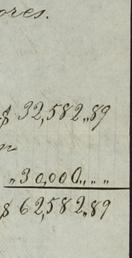 ores.
$ 32,582,,89
n
,,30,000,,,,
$ 62,582,,89